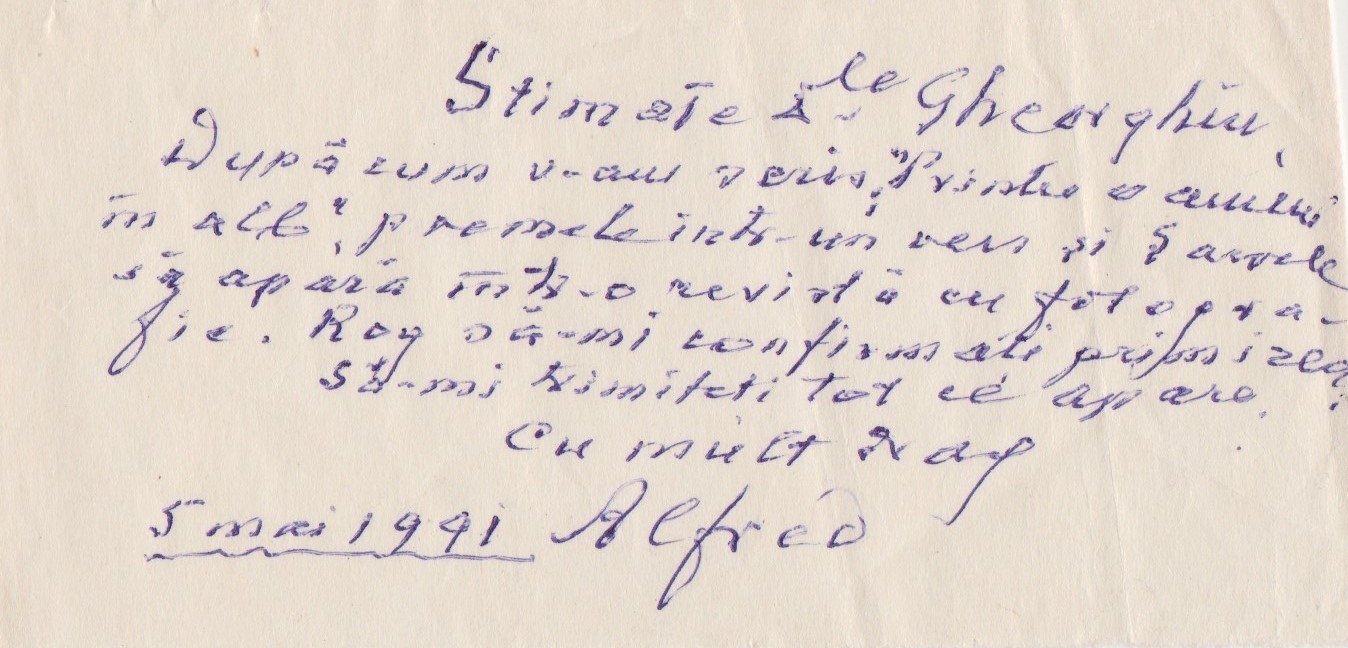 Stimate D-le Gheorghiu,
După cum v-am scris, "Printre
în alb", într-un vers și
să apară într-o revistă cu fotogra-
fie. Rog să-mi confirmați primirea
Să-mi trimiteți tot ce apare.
Cu mult drag
5 mai 1941 Alfred